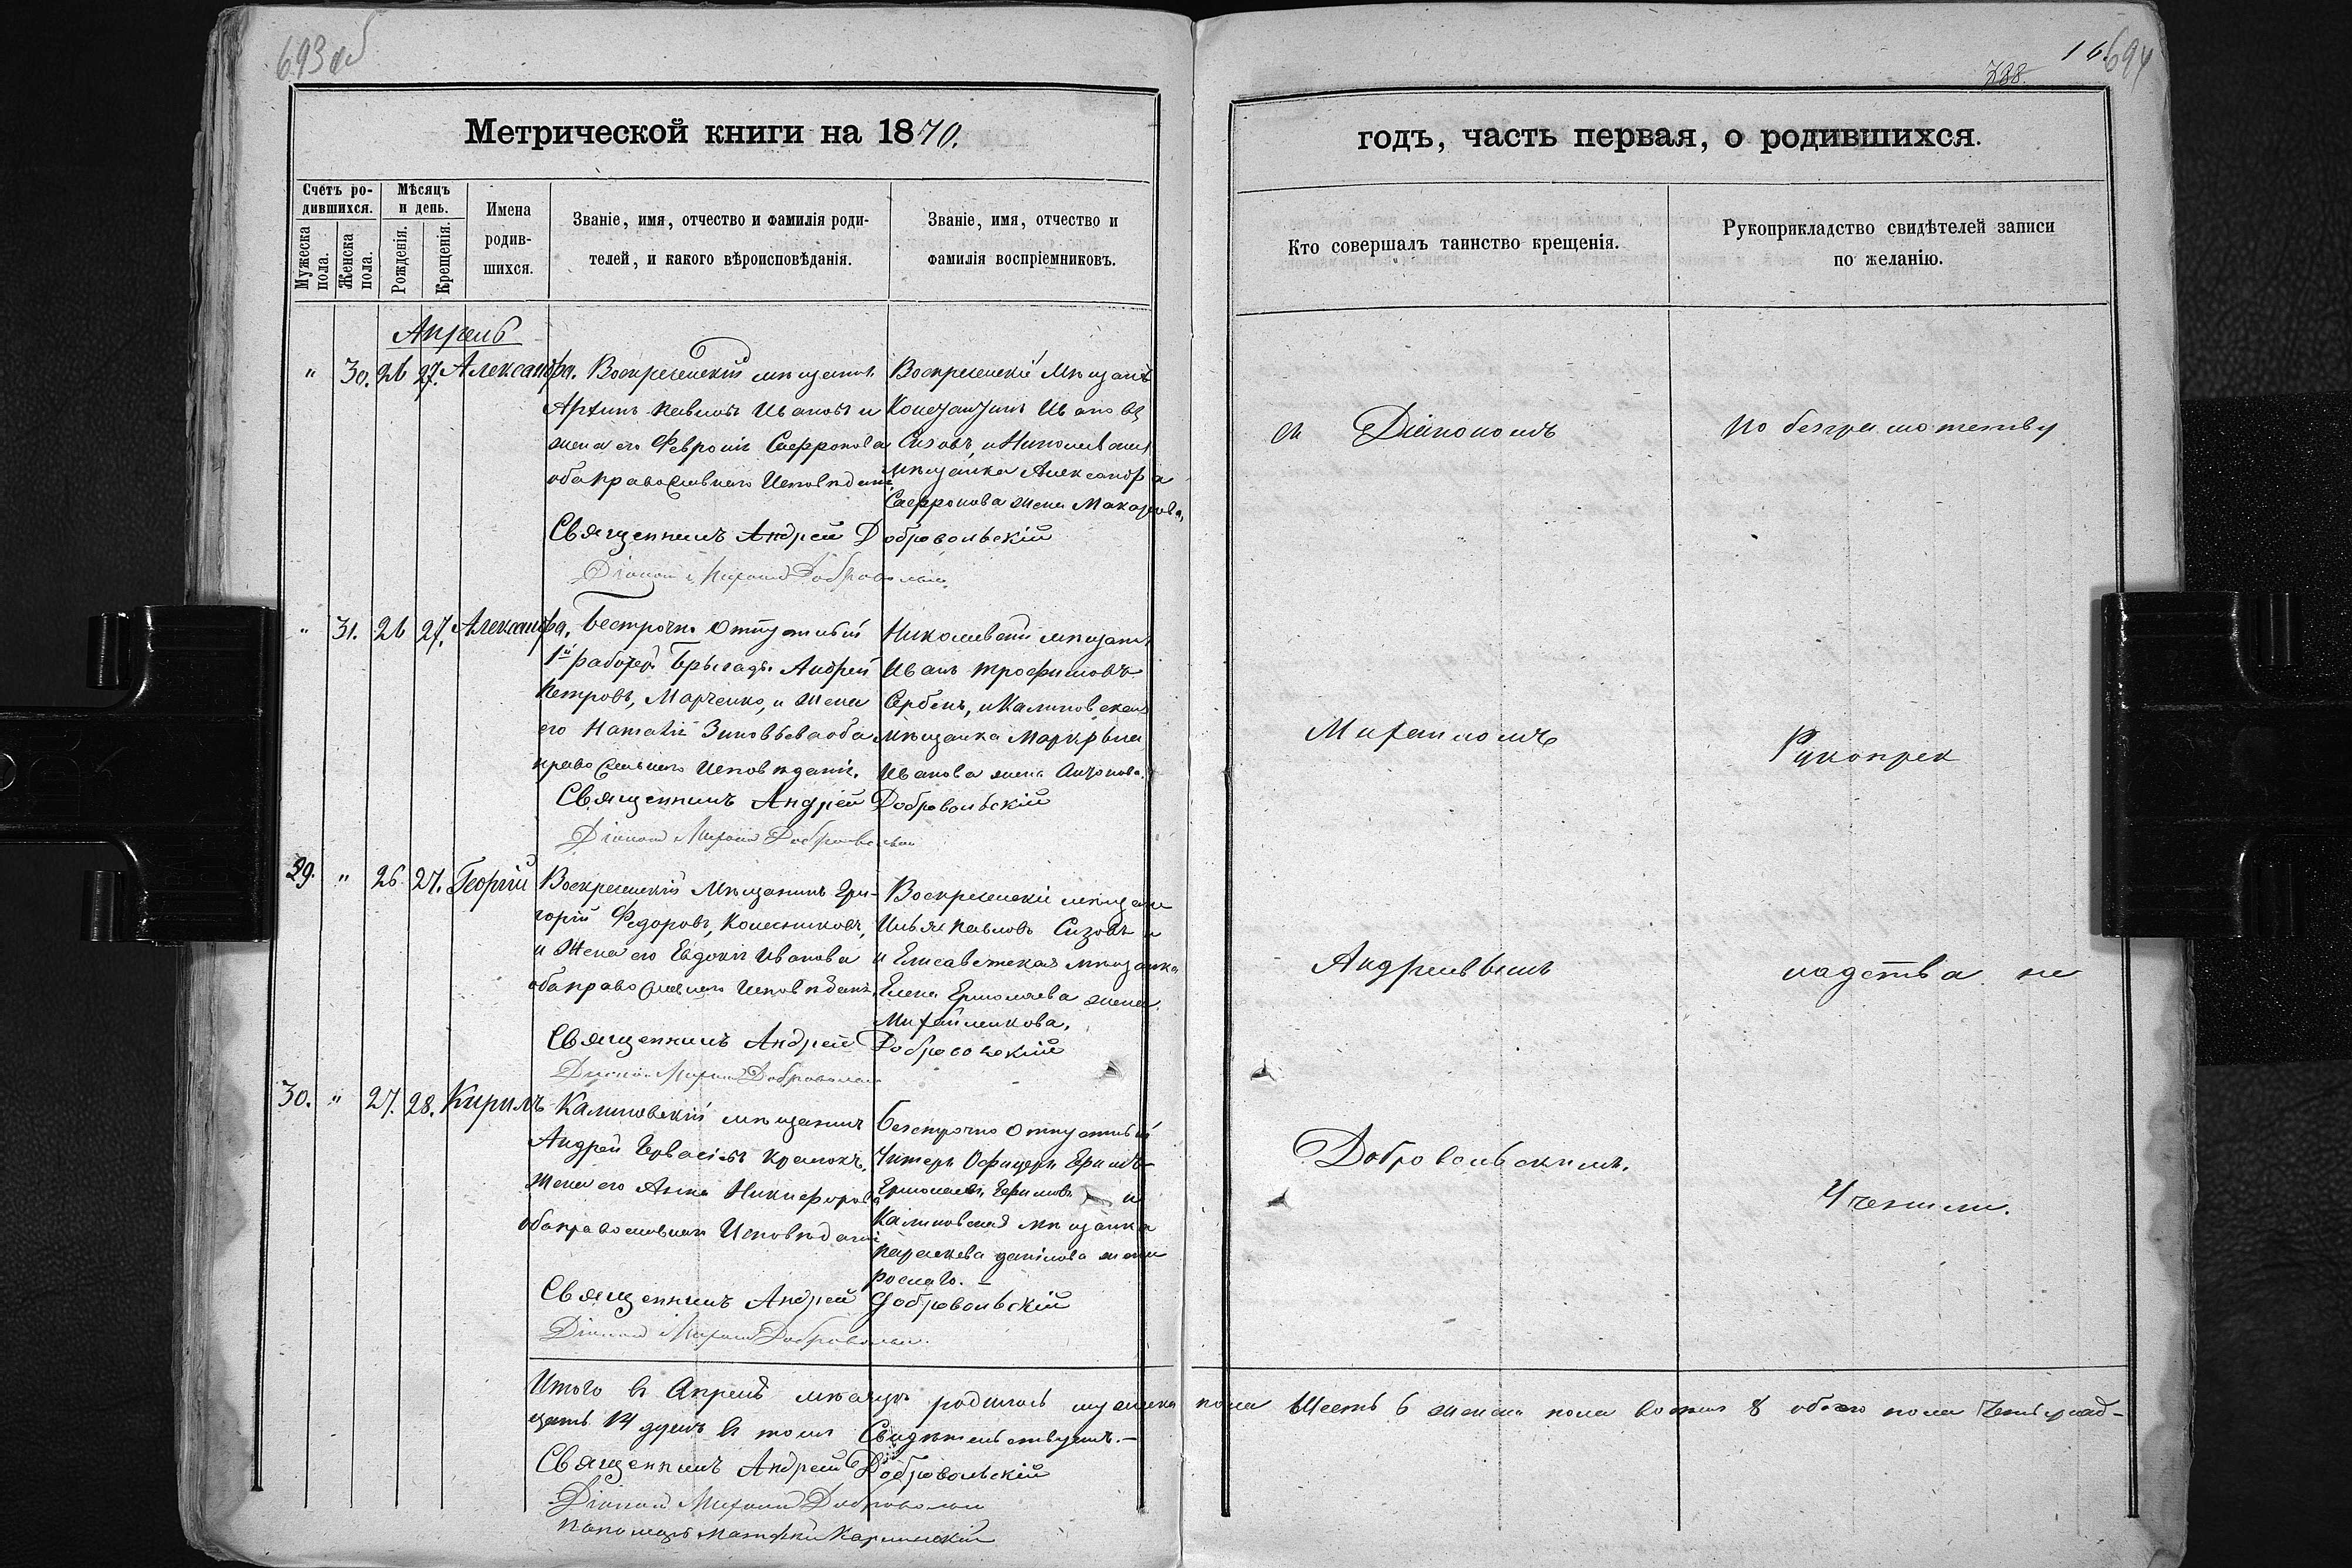 693 об
Метрической книги на 1870.
Счетъ родившихся.
Мужеска пола.
Женска пола.
Мѣсяцъ и день.
Рожденія.
Крещенія.
Имена родившихся.
Званіе, имя, отчество и фамилія родителей, и какого вѣроисповѣданія.
Званіе, имя, отчество и фамилія воспріемниковъ.
Апрель
" 30. 26 27. Александра.
Воскресенскій мещанинъ
Архипъ Павловъ Ивановъ и
жена его Февронія Сафронова
оба православнаго Исповѣданія
Воскресенскіе Мѣщане
Константинъ Ивановъ
Сизовъ, и Николаевская
мѣщанка Александра
Сафронова жена Макарова,
Священникъ Андрей Добровольскій
Діаконъ Михаилъ Добровольскій
" 31. 26 27. Александра.
Безсрочно Отпускный
1й рабочей Бригады Андрей
Петровъ, Марченко, и жена
его Наталія Зиновьева оба
православнаго Исповѣданія.
Николаевскій мѣщанинъ
Иванъ Трофимовъ
Сербенъ, и Калиновская
мѣщанка
Иванова жена Антонова.
Священникъ Андрей Добровольскій
Діаконъ Михаилъ Добровольскій
29. " 26 27. Георгій
Воскресенскій Мѣщанинъ Гри-
горій Федоровъ, Колесниковъ,
и Жена его Евдокія Иванова
оба православнаго Исповѣданія.
Воскресенскіе мещане
Илья Павловъ Сизовъ и
и Елисаветская мѣщанка
Елена Ермолаева жена
Михайленкова.
Священникъ Андрей Добровольскій
Діаконъ Михаилъ Добровольскій
30. " 27. 28. Кирилъ
Калиновскій мѣщанинъ
Андрей
жена его Анна Никифорова
оба православнаго Исповѣданія
безсрочно Отпускный
Унтеръ Офицеръ
Ермолаевъ, Ефимовъ и
Калиновская мѣщанка
Параскева данілова жена
Священникъ Андрей Добровольскій
Діаконъ Михаилъ Добровольскій
Итого въ Апрелѣ мѣсяцѣ родилось мужеска пола Шесть 6 женска пола восемь 8 обоего пола Четырнад-
цать 14 душъ въ томъ Свидѣтельствуемъ.—
Священникъ Андрей Добровольскій
Діаконъ Михаилъ Добровольскій
Пономарь
388.
694
годъ, часть первая, о родившихся.
Кто совершалъ таинство крещенія.
Рукоприкладство свидѣтелей записи по желанію.
Діакономъ
Михаиломъ
Андреевымъ
Добровольскимъ.
По безграмотству
Рукоприк
ладства не
Учинили.